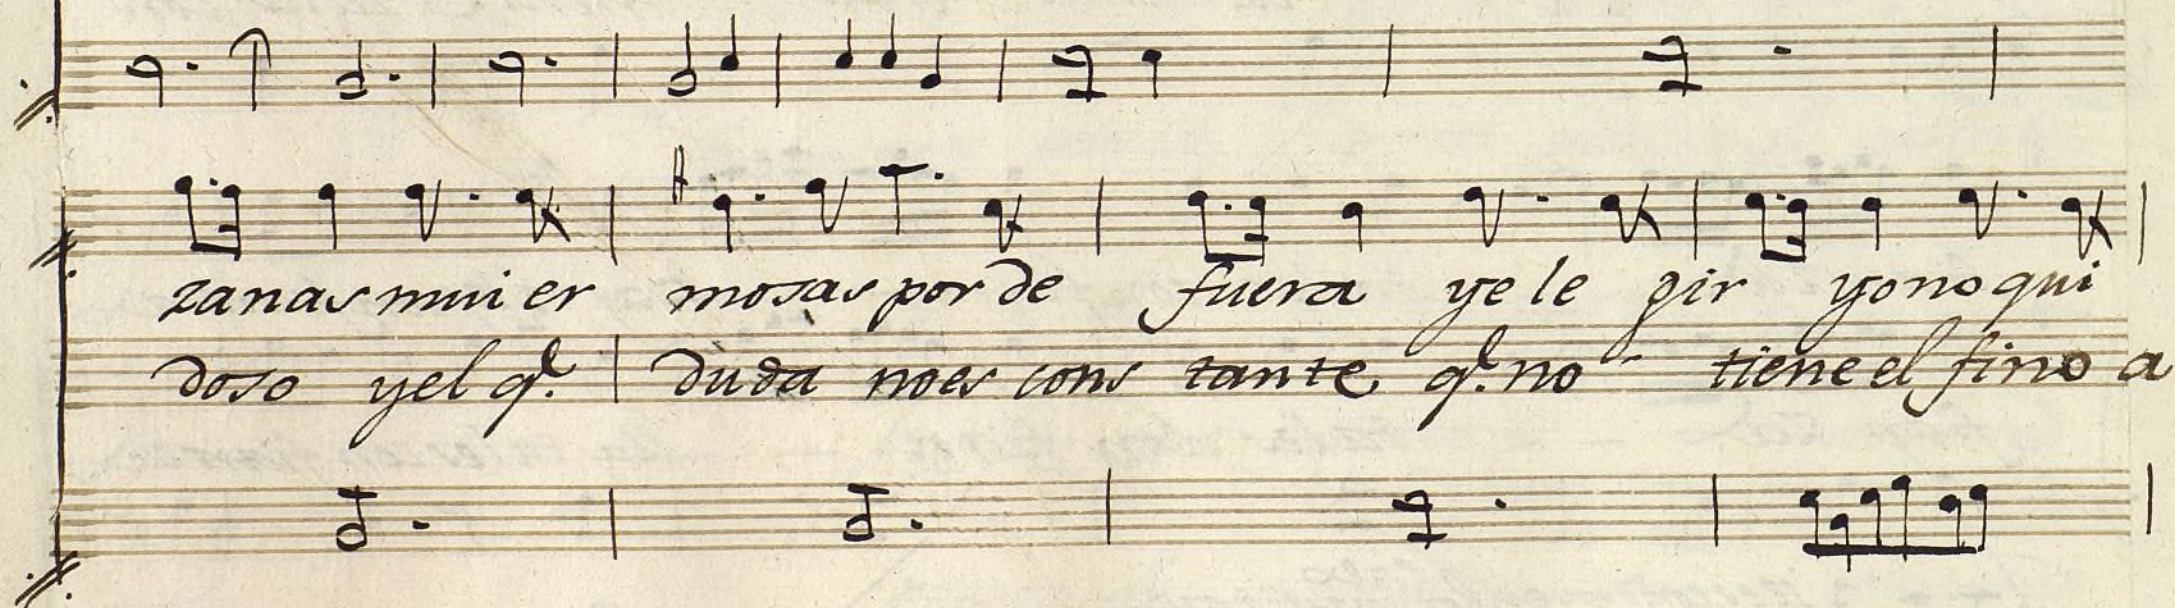 zanas mui er mosas por de fuera ye le gir yo no qui
doso yel q.e duda noes cons tante q.e no - tiene el fino a